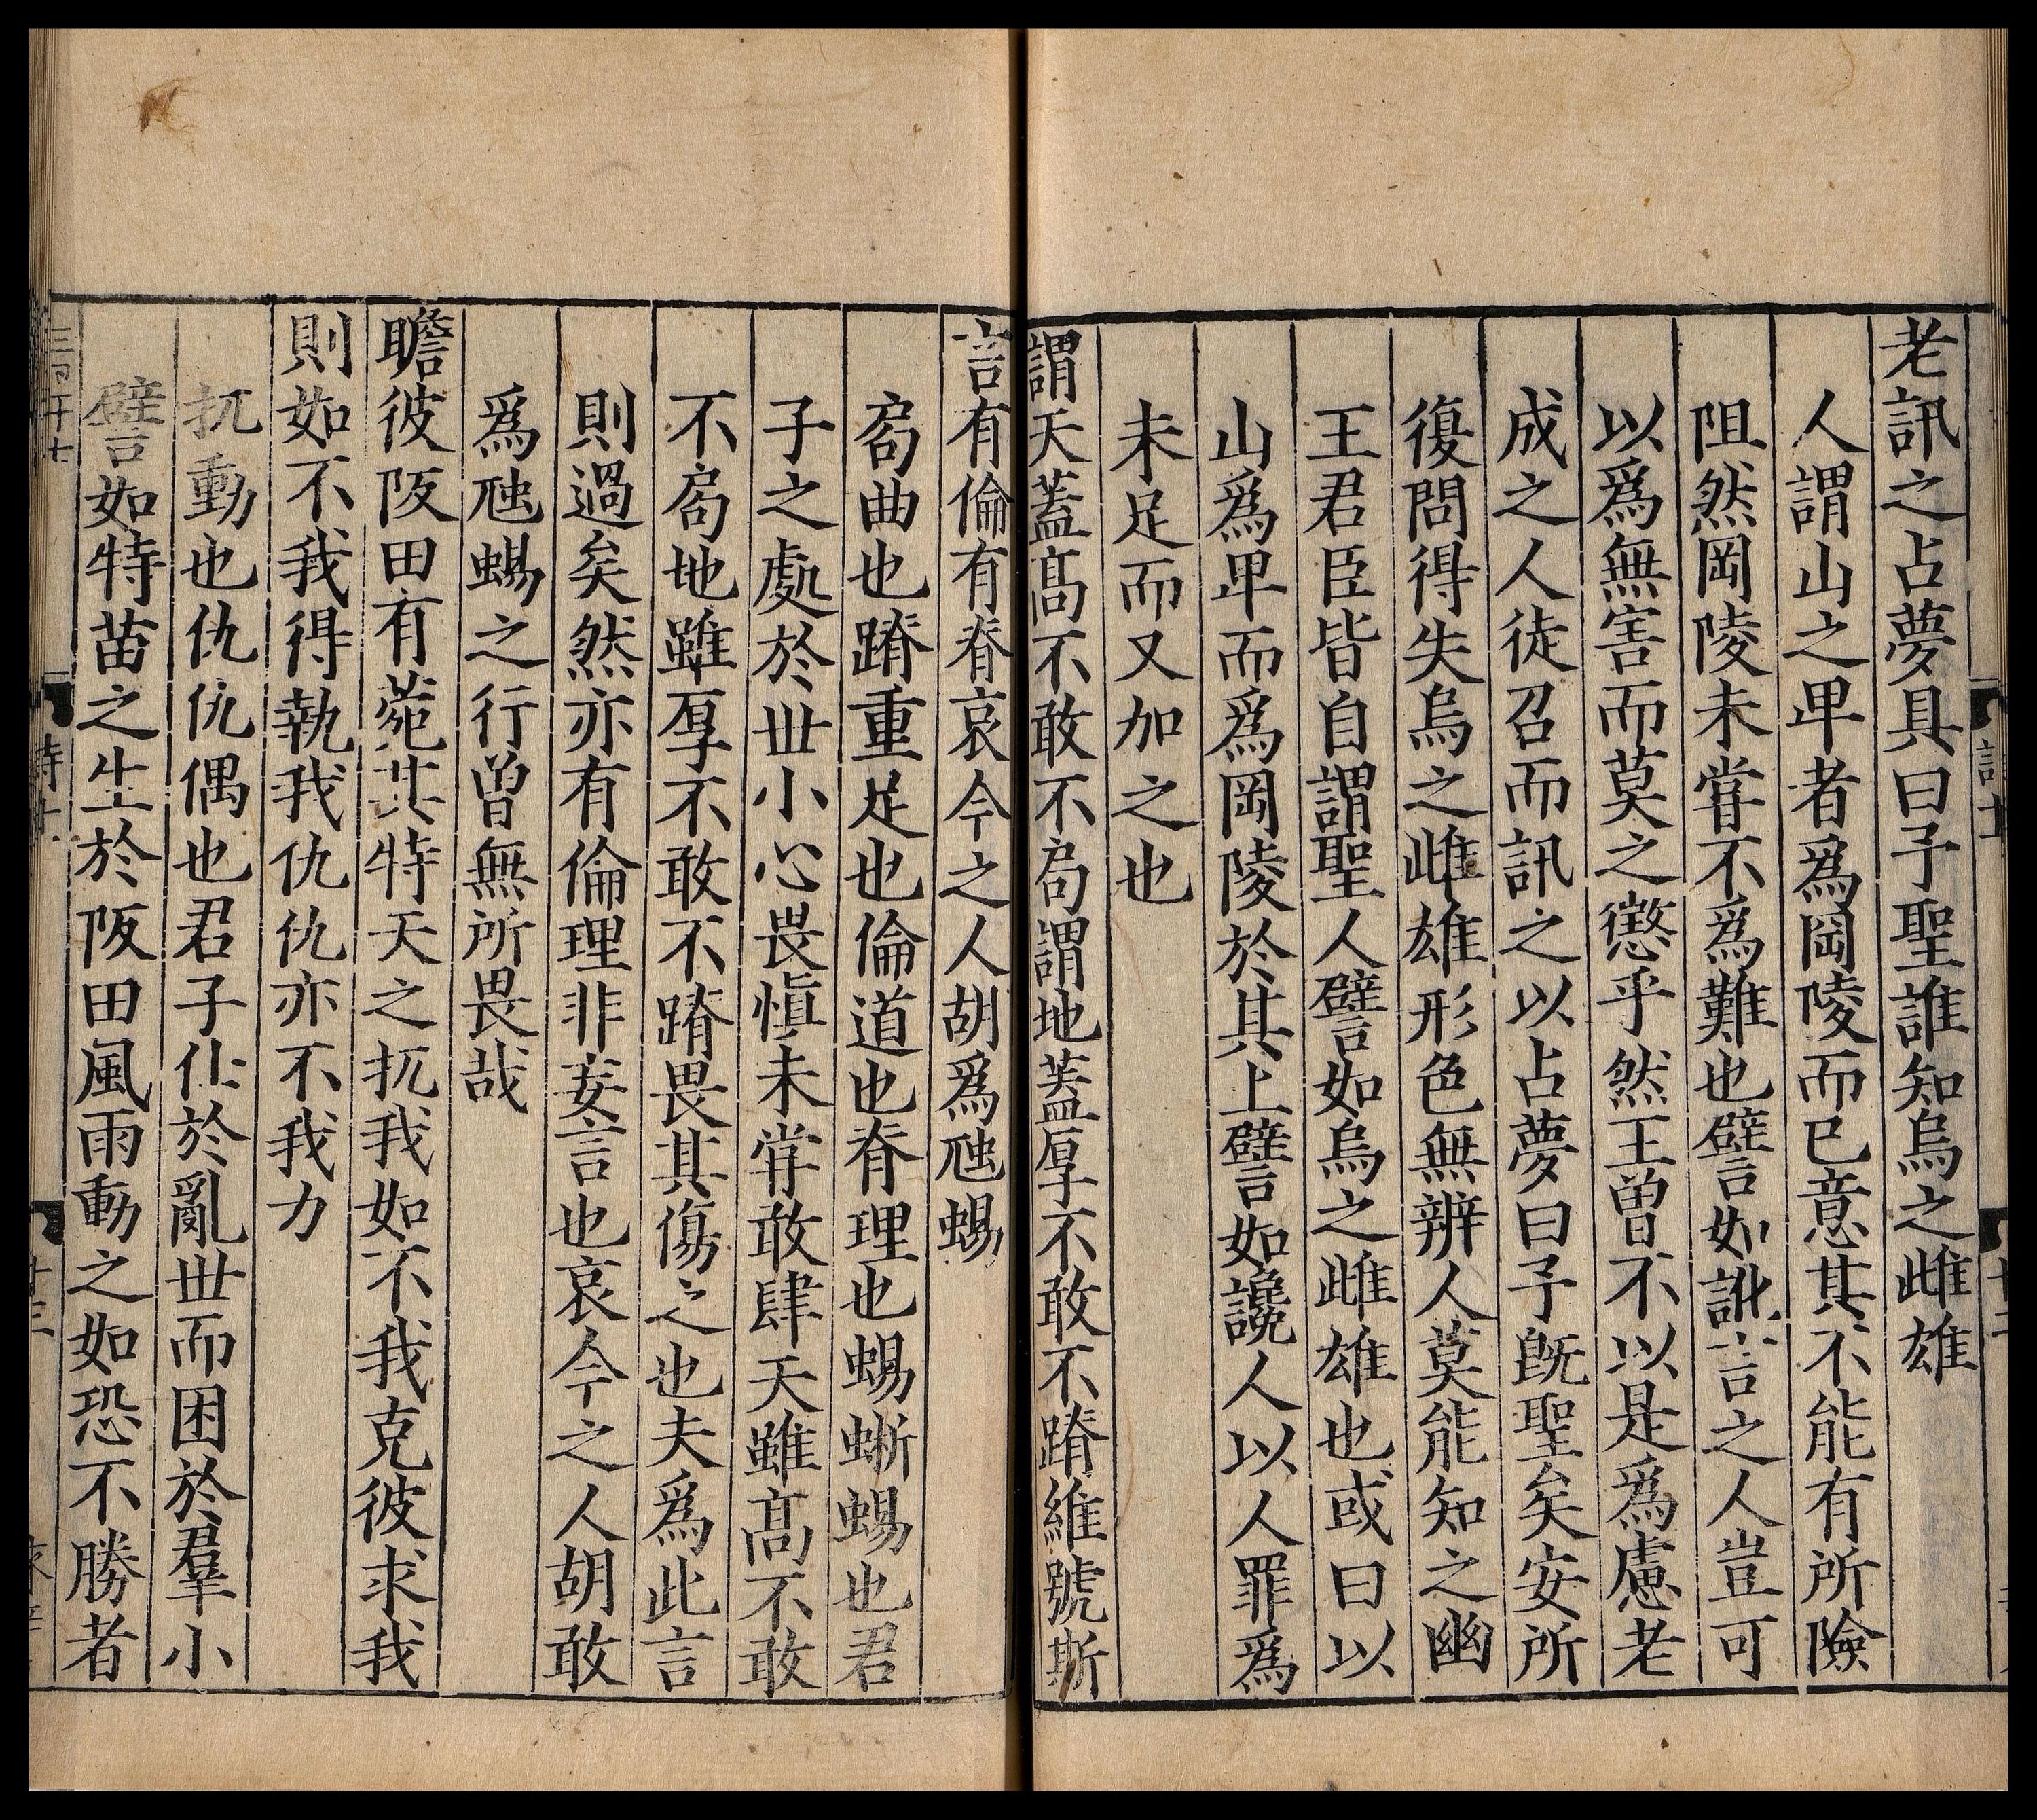 老訊之占夢具曰予聖誰知烏之雌雄
人謂山之卑者爲岡陵而已意其不能有所險
阻然岡陵未甞不爲難也譬如訛言之人豈可
以爲無害而莫之懲乎然王曽不以是爲慮老
成之人徒召而訊之以占夢曰予旣聖矣安所
復問得失烏之雌雄形色無辨人莫能知之幽
王君臣皆自謂聖人譬如烏之雌雄也或曰以
山爲卑而爲岡陵於其上譬如讒人以人罪爲
未足而又加之也
謂天蓋髙不敢不局謂地蓋厚不敢不蹐維號斯
言有倫有脊哀今之人胡爲虺蜴
局曲也蹐重足也倫道也脊理也蜴蜥蜴也君
子之處於世小心畏愼未甞敢肆天雖髙不敢
不局地雖厚不敢不蹐畏其傷之也夫爲此言
則過矣然亦有倫理非妄言也哀今之人胡敢
爲虺蜴之行曽無所畏哉
瞻彼阪田有菀其特天之扤我如不我克彼求我
則如不我得執我仇仇亦不我力
扤動也仇仇偶也君子仕於亂世而困於羣小
譬如特苗之生於阪田風雨動之如恐不勝者
詩十
廿三